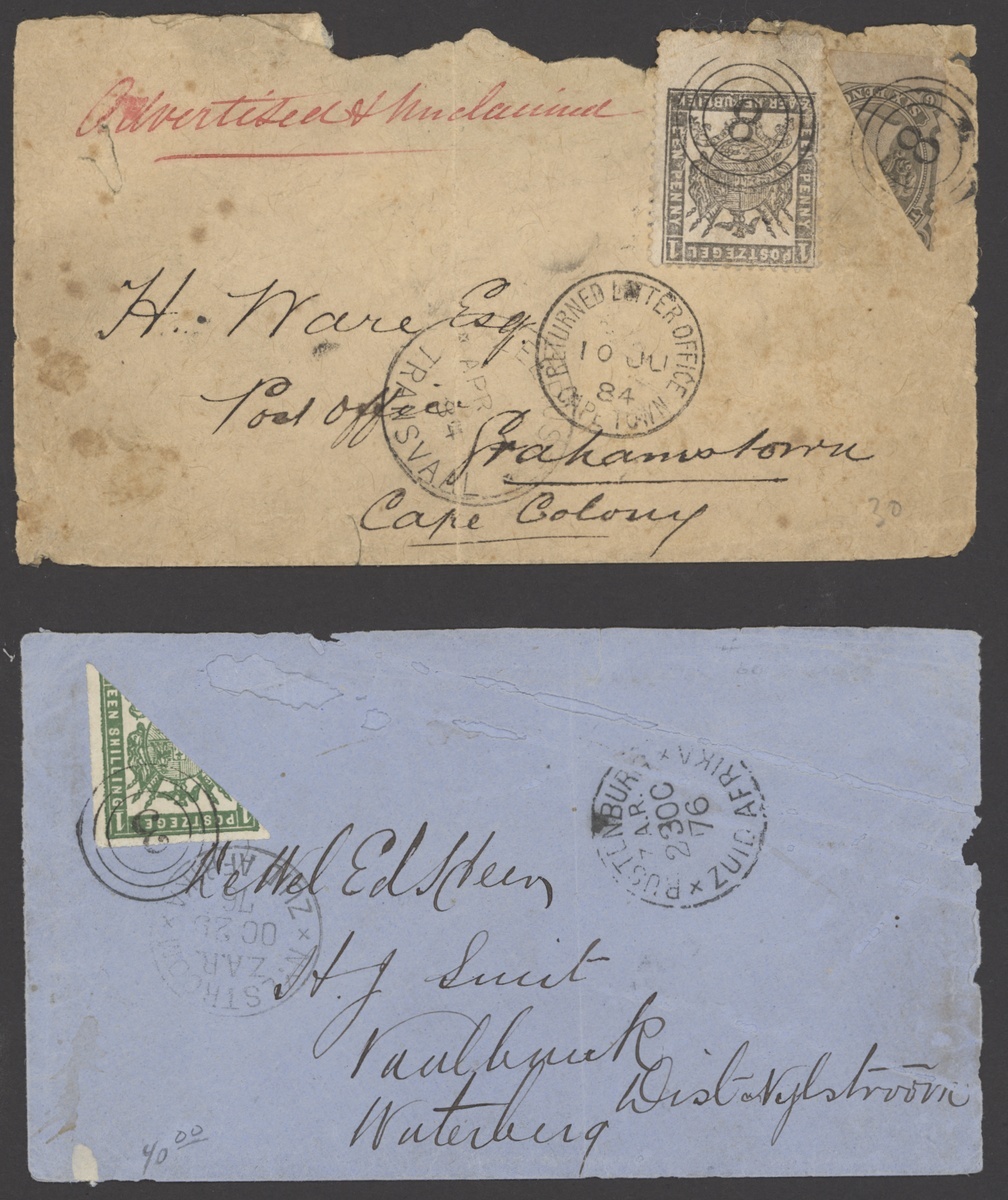 Advertised & Unclaimed
Z. AFR. REPUBLIEK
EEN PENNY
EEN PENNY
1 POSTZEGEL 1
8
SIX
8
H. Ware Esq
Post Office
Grahamstown
Cape Colony
RETURNED LETTER OFFICE
10 JU
84
CAPE TOWN
APR
84
TRANSVAAL
30
EEN SHILLING
1 POSTZEGEL 1
8
RUSTENBURG × ZUID AFRIKA ×
Z.A.R.
23 OC
76
Z.A.R.
OC 25
76
H. J. Smit
Waterberg
Dist Nylstroom
40 00